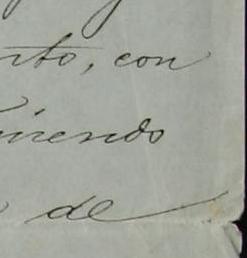 nto, con
iriendo
de